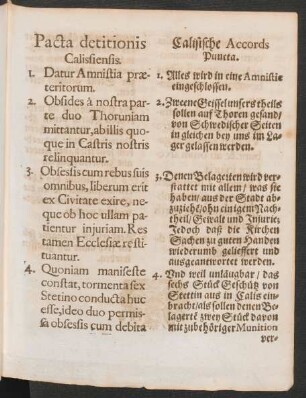 Pacta detitionis
Calissiensis.
1. Datur Amnistia præ-
teritorum.
2. Obsides à nostra par-
te duo Thoruniam
mittantur, ab illis quo-
que in Castris nostris
relinquantur.
3. Obsessis cum rebus suis
omnibus, liberum erit
ex Civitate exire, ne-
que ob hoc ullam pa-
tientur injuriam. Res
tamen Ecclesiæ resti-
tuantur.
4. Quoniam manifeste
constat, tormenta sex
Stetino conducta huc
esse, ideo duo permis-
sa obsessis cum debita
Calisische Accords
Puncta.
1. Alles wird in eine Amnistie
eingeschlossen.
2. Zweene Geissel unsers theils
sollen auf Thoren gesand/
von Schwedischer Seiten
in gleichen bey uns im La-
ger gelassen werden.
3. Denen Belagerten wird ver-
stattet mit allem/ was sie
haben/ aus der Stadt ab-
zuziehẽ/ ohn einigem Nach-
theil/ Gewalt und Injurie;
Jedoch daß die Kirchen
Sachen zu guten Handen
wiederumb geliefert und
ausgeantwortet werden.
4. Und weil unläugbar/ das
sechs Stück Geschütz von
Stettin aus in Calis ein-
bracht/ als sollen denen Be-
lagertẽ zwey Stück davon
mit zubehöriger Munition
ver-